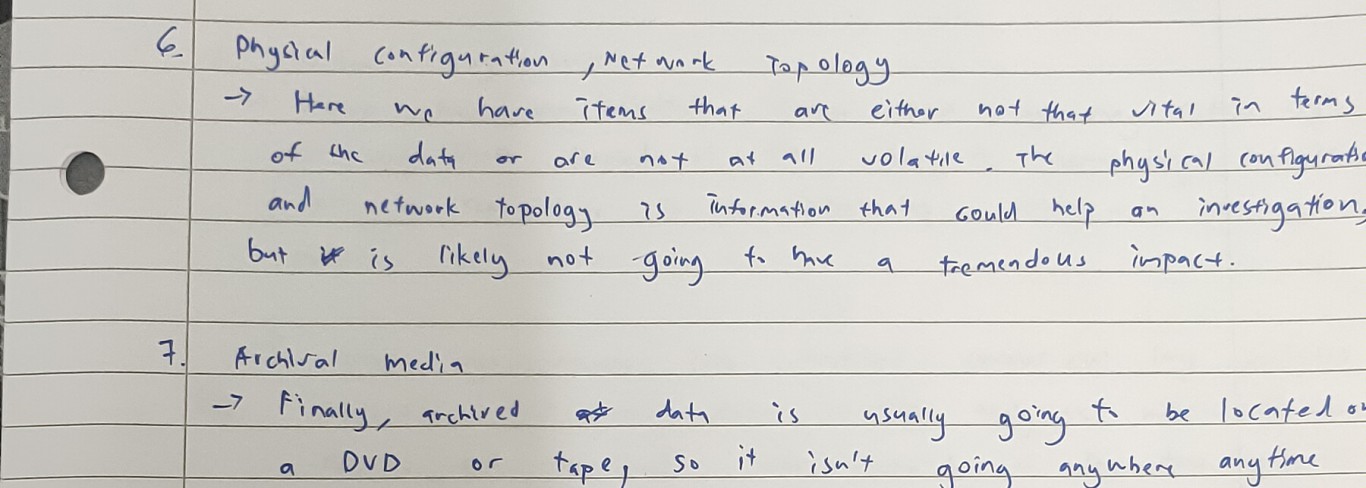 6. Physical configuration, Network Topology
→ Here we have items that are either not that vital in terms
of the data or are not at all volatile. The physical configuratio
and network topology is information that could help an investigation,
but is likely not going to have a tremendous impact.
7. Archival media
→ Finally, archived data is usually going to be located on
a DVD or tape, so it isn't going anywhere anytime